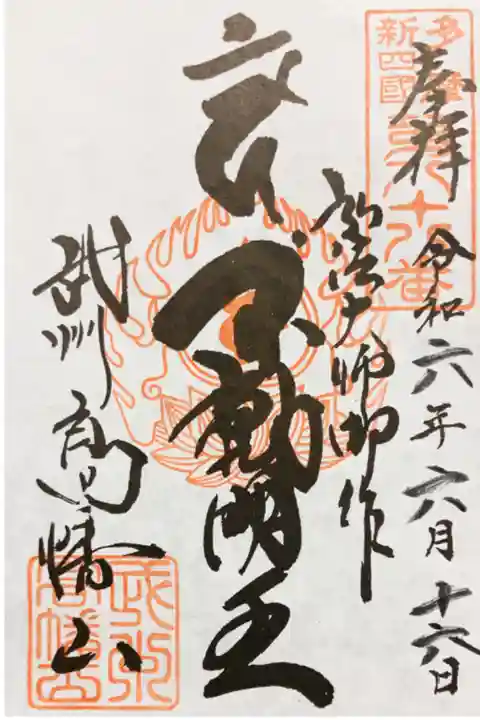 奉拝
令和六年六月十六日
弘法大師御作
不動明王
武州
高幡山
多摩
新四國
第八十八番
武州
高幡山